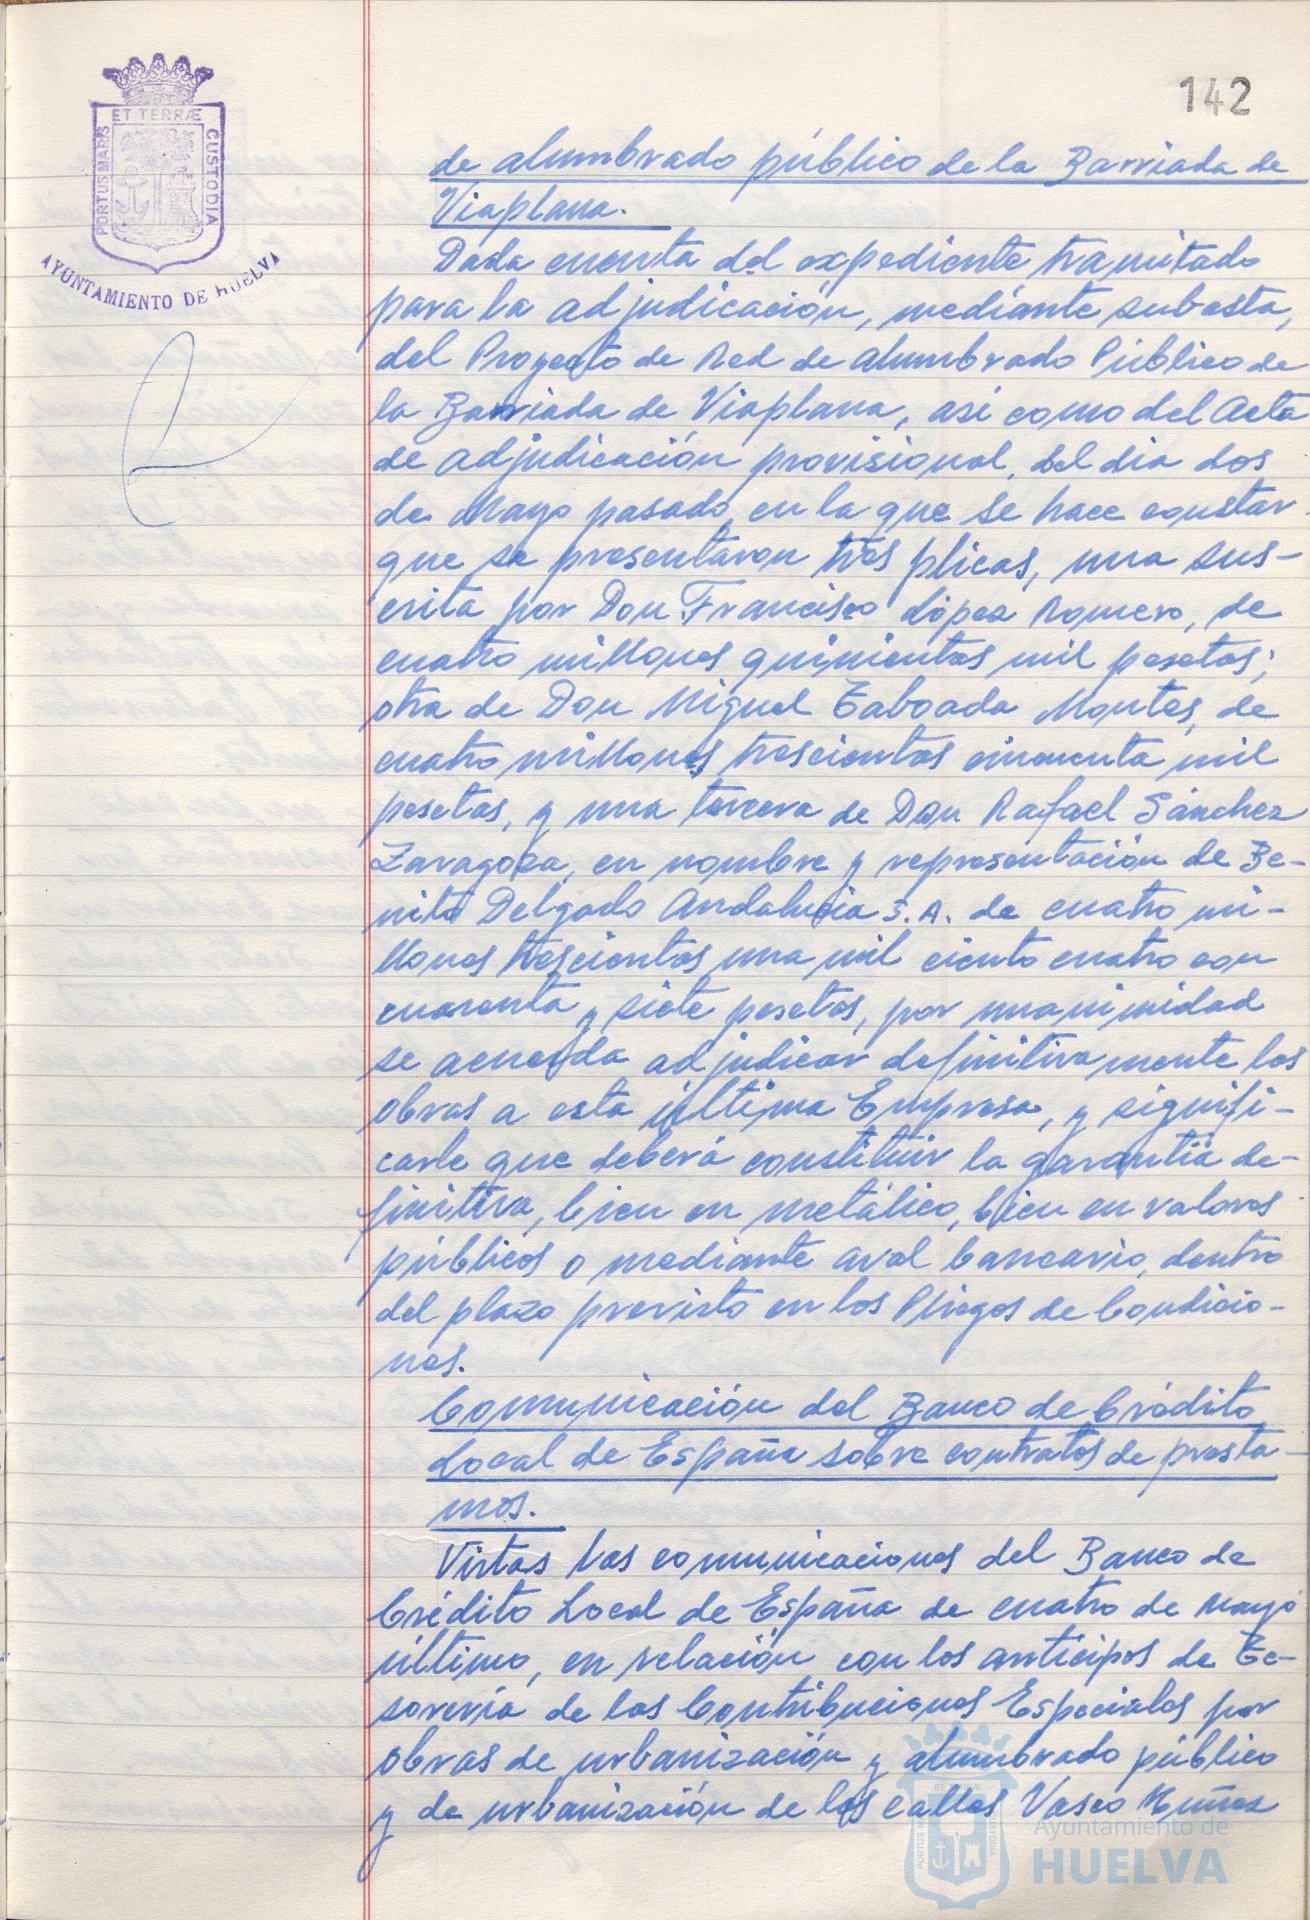 142
ET TERRÆ
PORTUS MARIS
CUSTODIA
AYUNTAMIENTO DE HUELVA
de alumbrado público de la Barriada de
Viaplana.
Dada cuenta del expediente tramitado
para la adjudicación, mediante subasta,
del Proyecto de Red de Alumbrado Público de
la Barriada de Viaplana, así como del Acta
de adjudicación provisional, del día dos
de Mayo pasado, en la que se hace constar
que se presentaron tres plicas, una sus-
crita por Don Francisco López Romero, de
cuatro millones quinientas mil pesetas;
otra de Don Miguel Taboada Montes, de
cuatro millones trescientas cincuenta mil
pesetas, y una tercera de Don Rafael Sánchez
Zaragoza, en nombre y representación de Be-
nito Delgado Andalucia S.A. de cuatro mi-
llones trescientas una mil ciento cuatro con
cuarenta y siete pesetas, por unanimidad
se acuerda adjudicar definitivamente las
obras a esta última Empresa, y signifi-
carle que deberá constituir la garantía de-
finitiva, bien en metálico, bien en valores
públicos o mediante aval bancario, dentro
del plazo previsto en los Pliegos de Condicio-
nes.
Comunicación del Banco de Crédito
Local de España sobre contratos de presta-
mos.
Vistas las comunicaciones del Banco de
Crédito Local de España de cuatro de Mayo
último, en relación con los anticipos de Te-
sorería de las Contribuciones Especiales por
obras de urbanización y alumbrado público
y de urbanización de las calles Vasco Nuñez
Ayuntamiento de
HUELVA